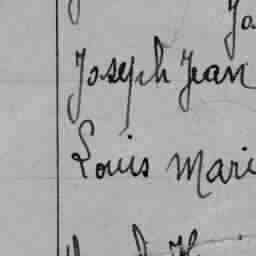 Ja
Joseph Jean
Louis Mari